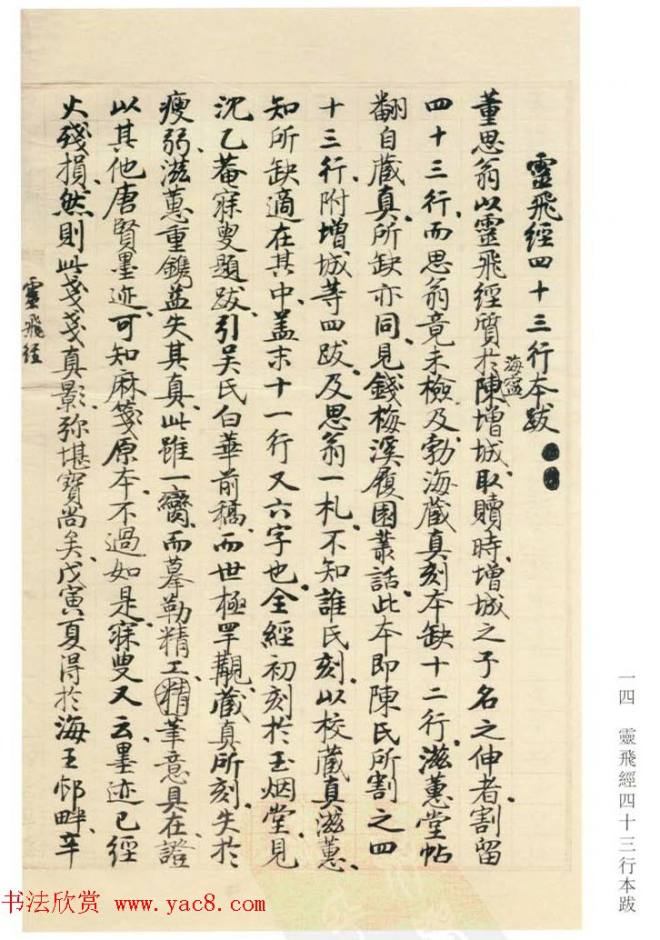 一四　靈飛經四十三行本跋
靈飛經四十三行本跋
董思翁以靈飛經質於海寧陳增城、取贖時、增城之子名之伸者、割留
四十三行、而思翁竟未檢及、勃海藏真刻本缺十二行、滋蕙堂帖
翻自藏真、所缺亦同、見錢梅溪履園叢話、此本即陳氏所割之四
十三行、附增城等四跋、及思翁一札、不知誰氏刻、以校藏真滋蕙、
知所缺適在其中、蓋末十一行又六字也、全經初刻於玉烟堂、見
沈乙菴寐叟題跋、引吳氏白華前稿、而世極罕覯、藏真所刻、失於
瘦弱、滋蕙重鐫、益失其真、此雖一臠、而摹勒精工、精筆意具在、證
以其他唐賢墨迹、可知麻箋原本、不過如是、寐叟又云、墨迹已經
火殘損、然則此戔戔真影、弥堪寶尚矣、戊寅夏得於海王邨畔、辛
靈飛經
书法欣赏 www.yac8.com